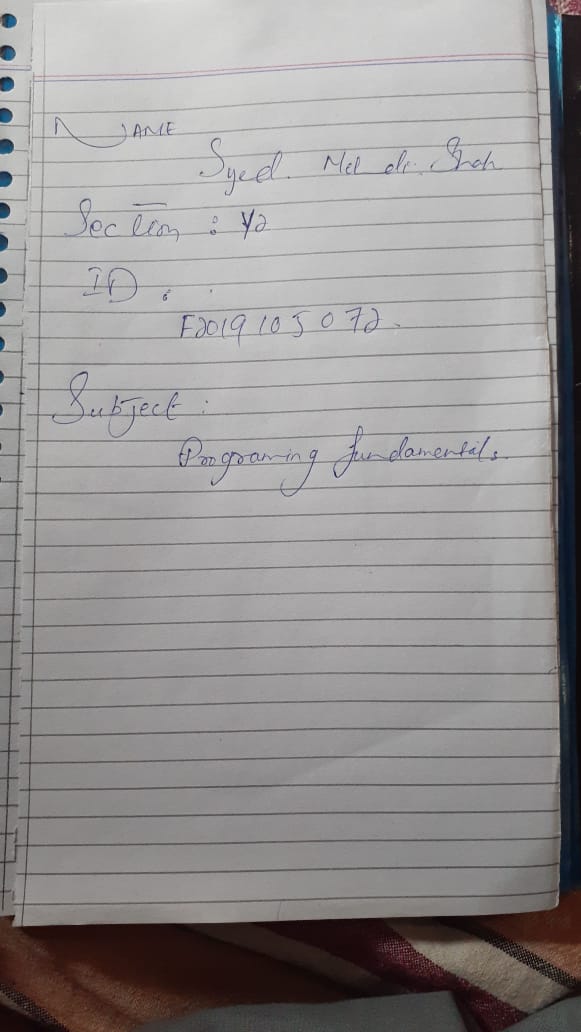 NAME
Syed. Mehdi Shah
Section : Y2
ID :
F2019105072.
Subject :
Programing fundamentals.